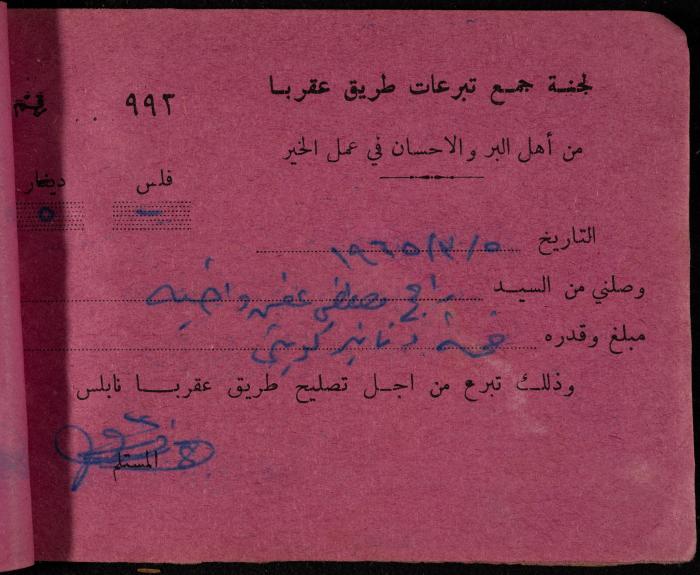 لجنة جمع تبرعات طريق عقربا
٩٩٢
من أهل البر والاحسان في عمل الخير
فلس دينار
— ٥
التاريخ ١٩٦٥/٣/٥
وصلني من السيد راجح مصطفى
مبلغ وقدره خمسة دنانير كويتي
وذلك تبرع من اجل تصليح طريق عقربا نابلس
المستلم